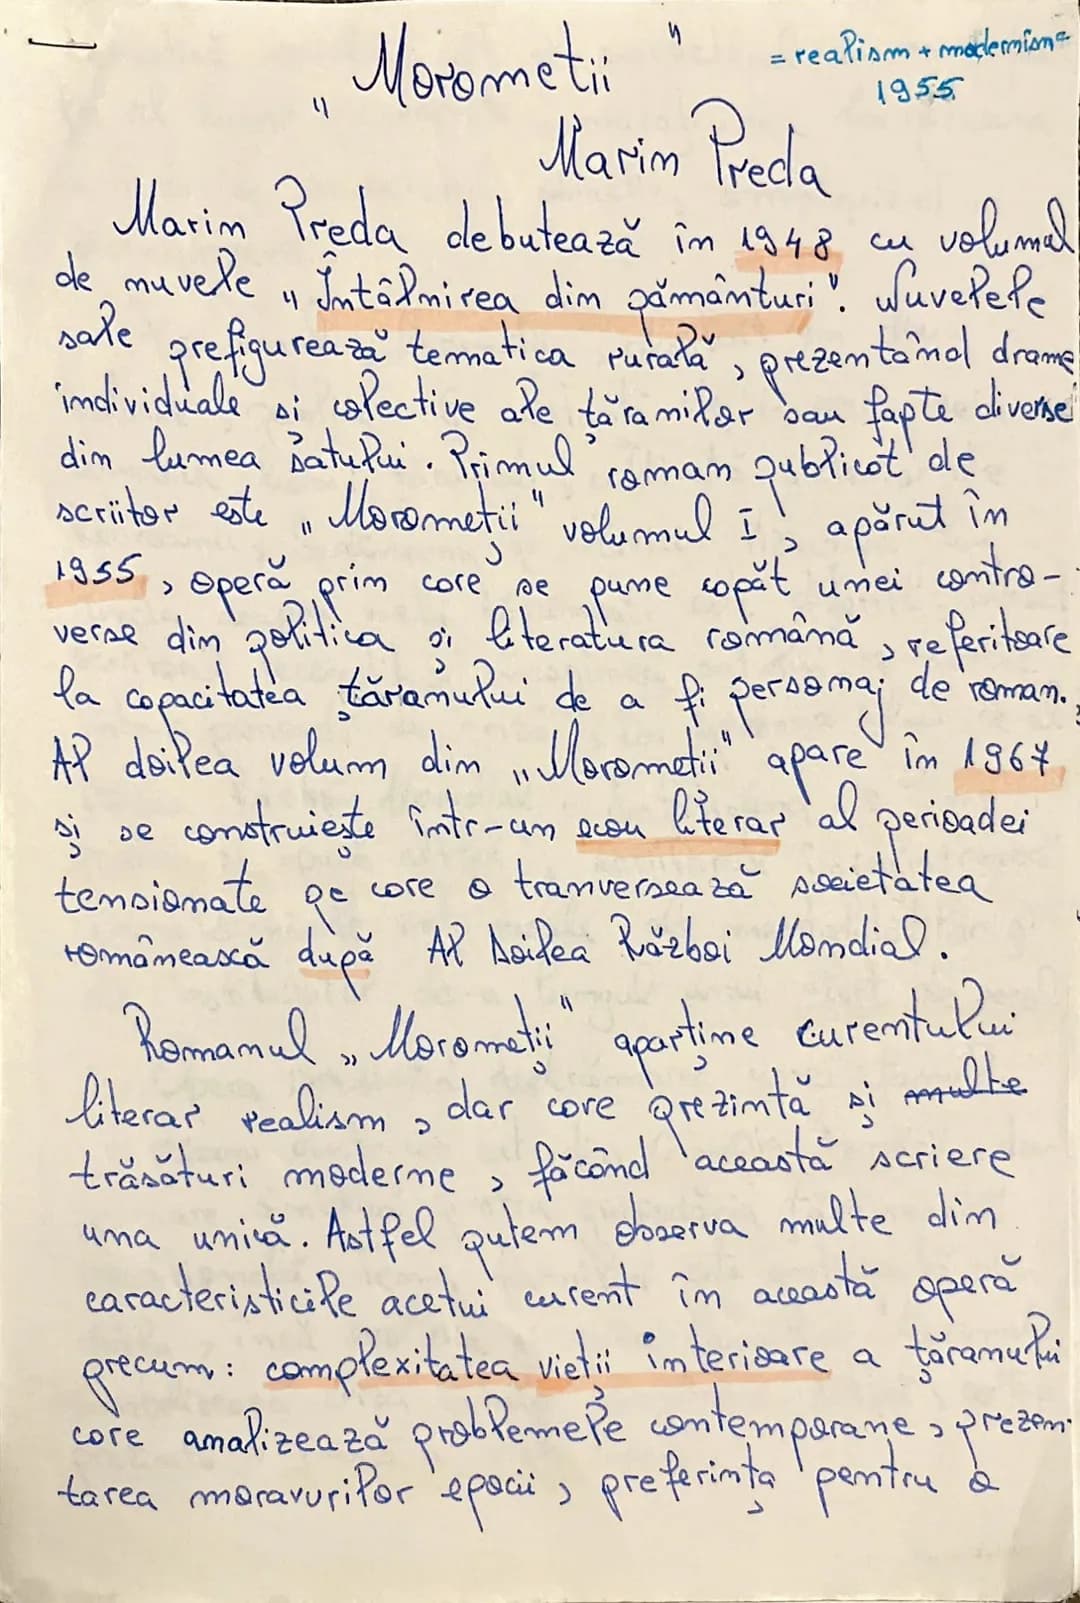 „Morometii"
= realism + modernism =
1955
Marin Preda
Marin Preda debutează în 1948 cu volumul
de nuvele „Întâlnirea din pământuri". Nuvelele
sale prefigurează tematica rurală, prezentând drame
individuale si colective ale țăranilor sau fapte diverse
din lumea satului. Primul roman publicat de
scriitor este „Moromeții" volumul I, apărut în
1955, operă prin care se pune capăt unei contro-
verse din politica și literatura română, referitoare
la capacitatea țăranului de a fi personaj de roman.
Al doilea volum din „Moromeții" apare în 1967
și se construiește într-un ecou literar al perioadei
tensionate pe care o tranversează societatea
românească după Al Doilea Război Mondial.
Romanul „Moromeții" aparține curentului
literar realism, dar care prezintă și multe
trăsături moderne, făcând această scriere
una unică. Astfel putem observa multe din
caracteristicile acetui curent în această operă
precum: complexitatea vieții interioare a țăranului
care analizează problemele contemporane, prezen-
tarea moravurilor epocii, preferința pentru o